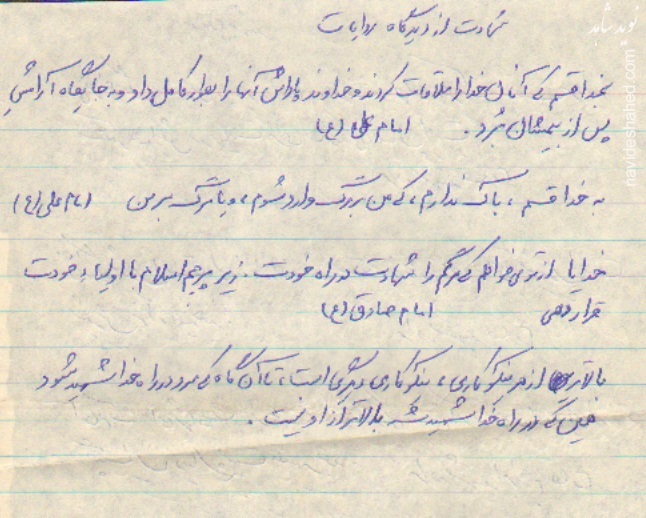 شهادت از دیدگاه روایات
بخدا قسم که آنان خدا را ملاقات کردند و خداوند پاداش آنها را بطور کامل داد و به جایگاه آرامش
پس از بیمشان بُرد. امام علی (ع)
به خدا قسم، باک ندارم، که من بر مرگ وارد شوم، و یا مرگ بر من امام علی (ع)
خدایا از تو می‌خواهم که مرگم را شهادت در راه خودت. زیر پرچم اسلام با اولیاء خودت
قرار دهی امام صادق (ع)
بالاتر از هر نیکوکاری، نیکوکاری دیگری است، تا آن گاه که مرد در راه خدا شهید شود
که در راه خدا شهید شد بالاتر از او نیست.
نوید شاهد
navideshahed.com